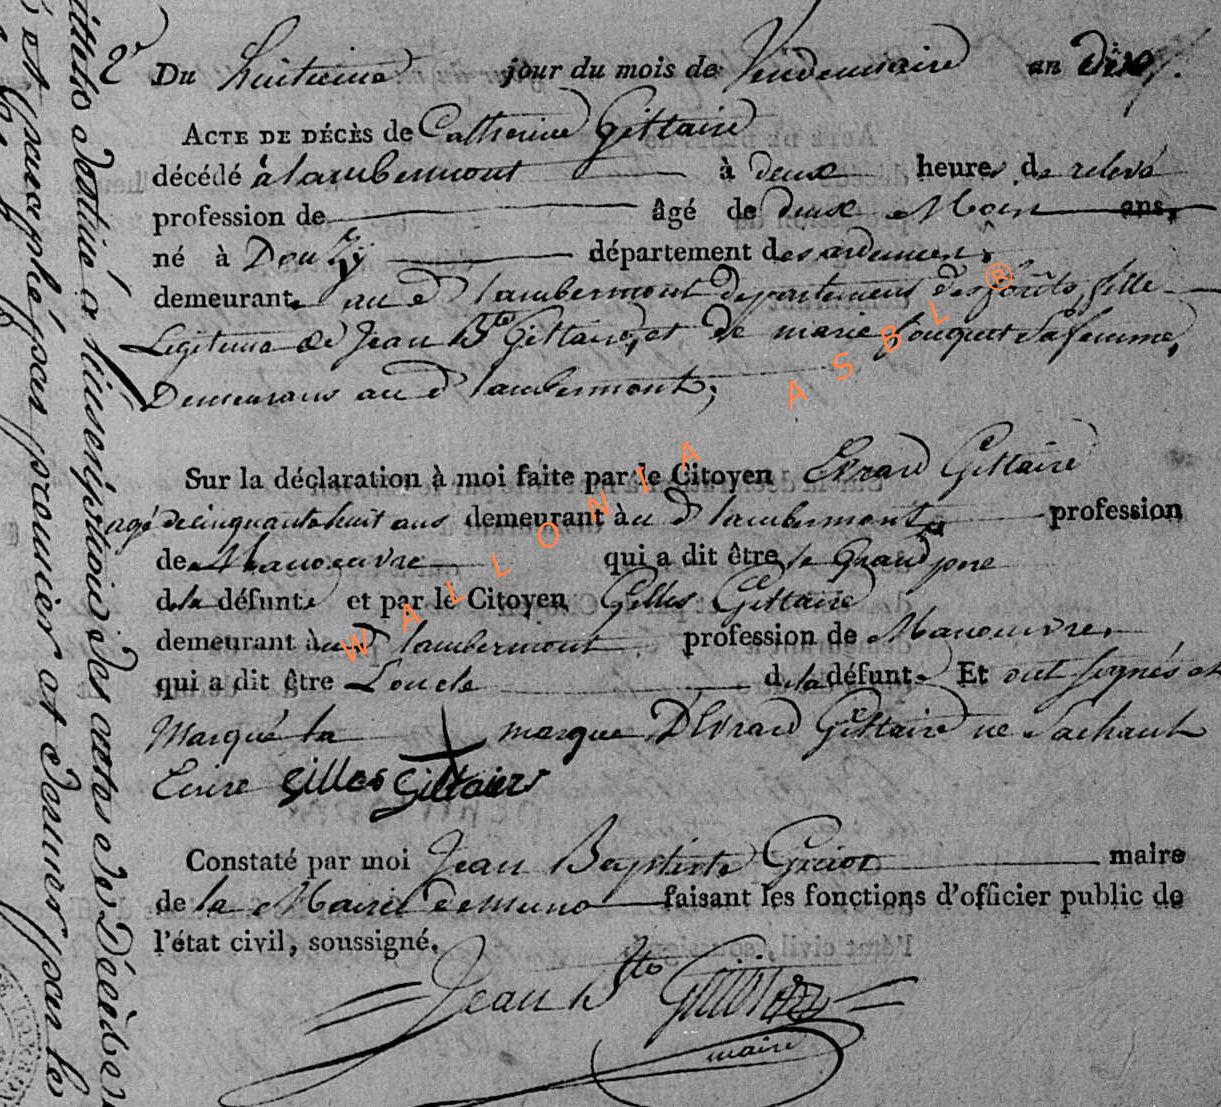 2e Du huitieme jour du mois de Vendemiaire an dix.
ACTE DE DÉCÈS de Catherine Gillaire
décédé à lambermont à deux heures de relevé
profession de âgé de deux Mois ans,
né à Douzÿ département des ardennes,
demeurante au d lambermont departement des forêts, fille
Legitime de Jean Bte Gillaire, et de marie fouquet Safemme,
Demeurans au d lambermont;
Sur la déclaration à moi faite par le Citoyen Evrard Gillaire
agé de cinquante huit ans demeurant àu d lambermont, profession
de Manoeuvre qui a dit être le Grand pere
de la défunte et par le Citoyen Gilles Gillaire
demeurant àu d lambermont profession de Manouvre,
qui a dit être Loncle de la défunte Et ont signés et
Marqué la marque D'Evrard Gillaire ne Sachant
Ecrire Gilles Gillaire
Constaté par moi Jean Baptiste maire
de la Mairie de muno faisant les fonctions d'officier public de
l'état civil, soussigné.
Jean Bte
maire
WALLONIA ASBL ®